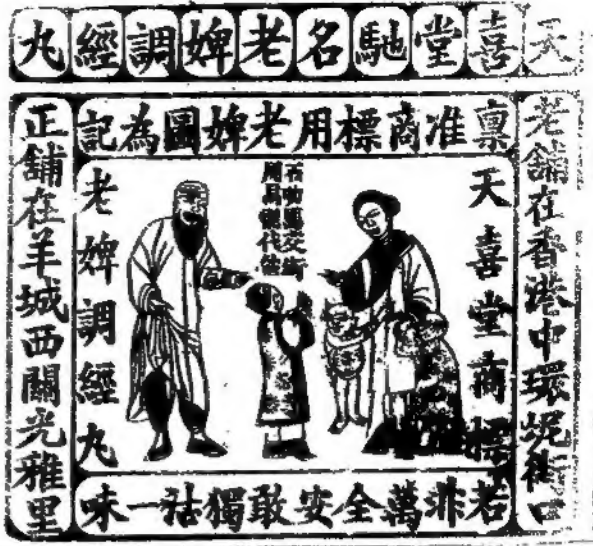 天喜堂馳名老婢調經丸
稟准商標用老婢圖為記
老舖在香港中環
天喜堂商標
老婢調經丸
正舖在羊城西關光雅里
若非萬全安敢獨沽一味